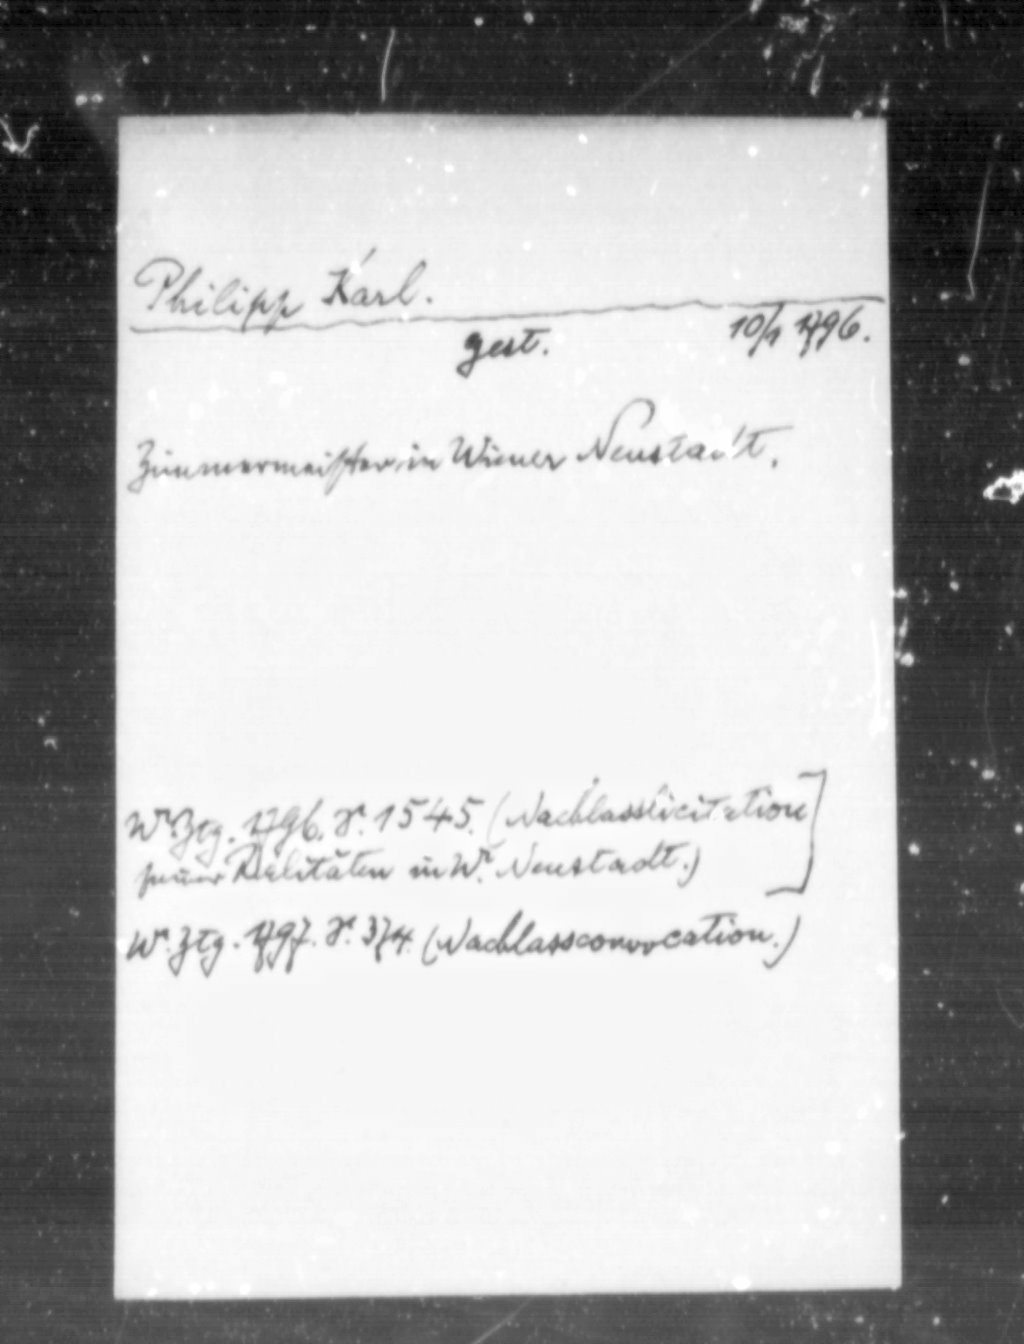 Philipp Karl.
gest. 10/1 1796.
Zimmermeister in Wiener Neustadt.
Wr. Ztg. 1796. S. 1545. (Nachlasslicitation
seiner Realitäten in Wr. Neustadt.)]
Wr. Ztg. 1797. S. 374. (Nachlassconvocation.)